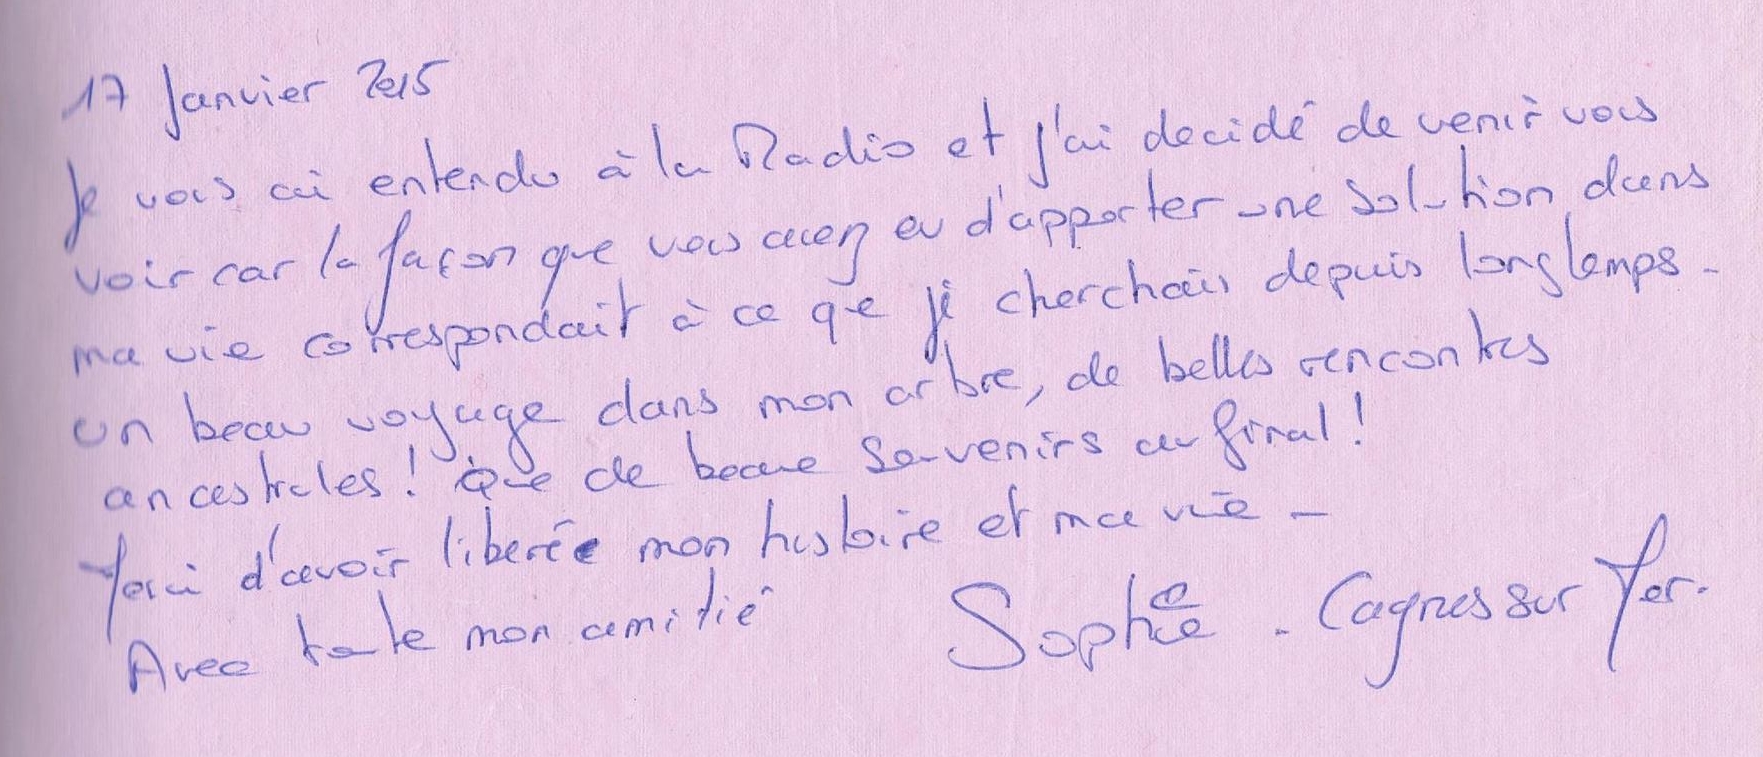 17 Janvier 2015
Je vous ai entendu à la Radio et j'ai decidé de venir vous
voir car la façon que vous avez eu d'apporter une solution dans
ma vie correspondait à ce que je cherchais depuis longtemps -
un beau voyage dans mon arbre, de belles rencontres
ancestrales ! Que de beaux souvenirs au final !
Merci d'avoir liberée mon histoire et ma vie -
Avec toute mon amitié
Sophie . Cagnes sur Mer.